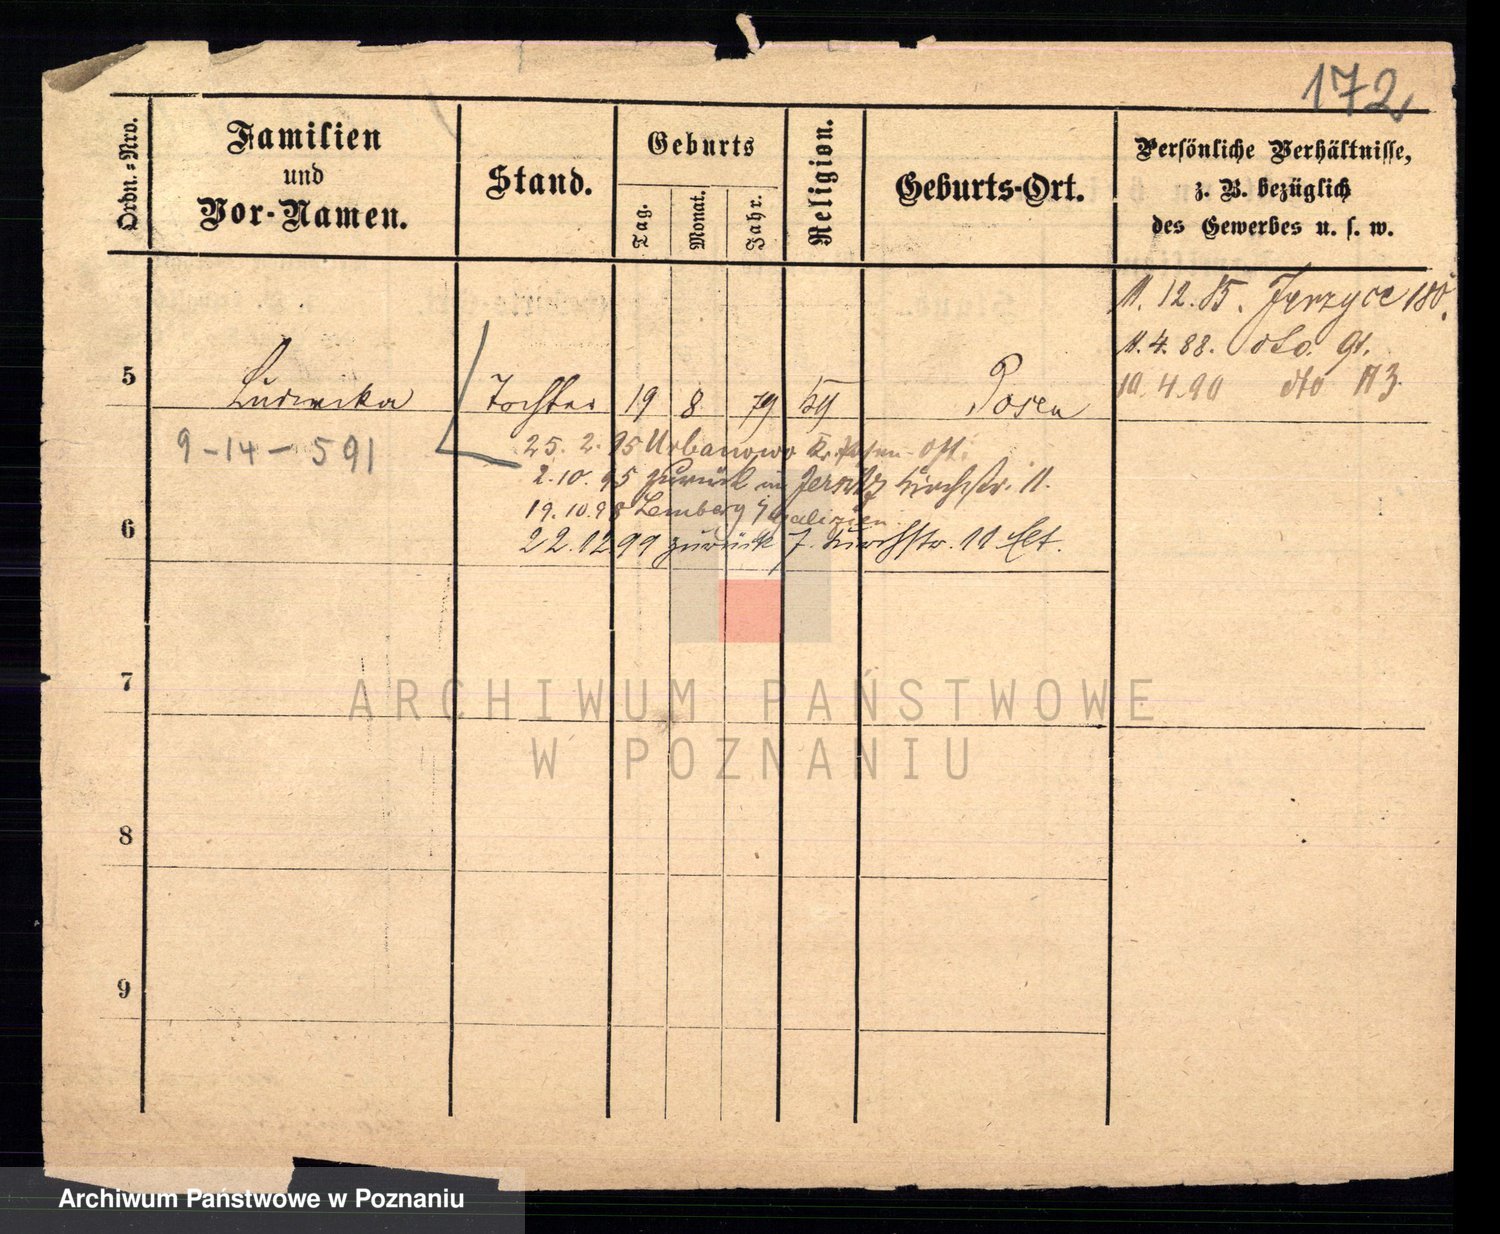 172
Ordn.-Nro.
Familien
und
Vor-Namen.
Stand.
Geburts
Tag.
Monat.
Jahr.
Religion.
Geburts-Ort.
Persönliche Verhältnisse,
z. B. bezüglich
des Gewerbes u. s. w.
11. 12. 85. Jerzyce 180.
11. 4. 88. dto. 91.
10. 4. 90 dto 113
5
Ludwika
Tochter
19
8.
79
Posen
9-14-591
25. 2. 95 Urbanowo Kr. Posen-Ost.
2. 10. 95 zurück in Jersitz Kirchstr. 11.
19. 10. 98 Lemberg Galizien
6
22. 12 99 zurück J. Kirchstr. 11
7
8
9
ARCHIWUM PAŃSTWOWE
W POZNANIU
Archiwum Państwowe w Poznaniu